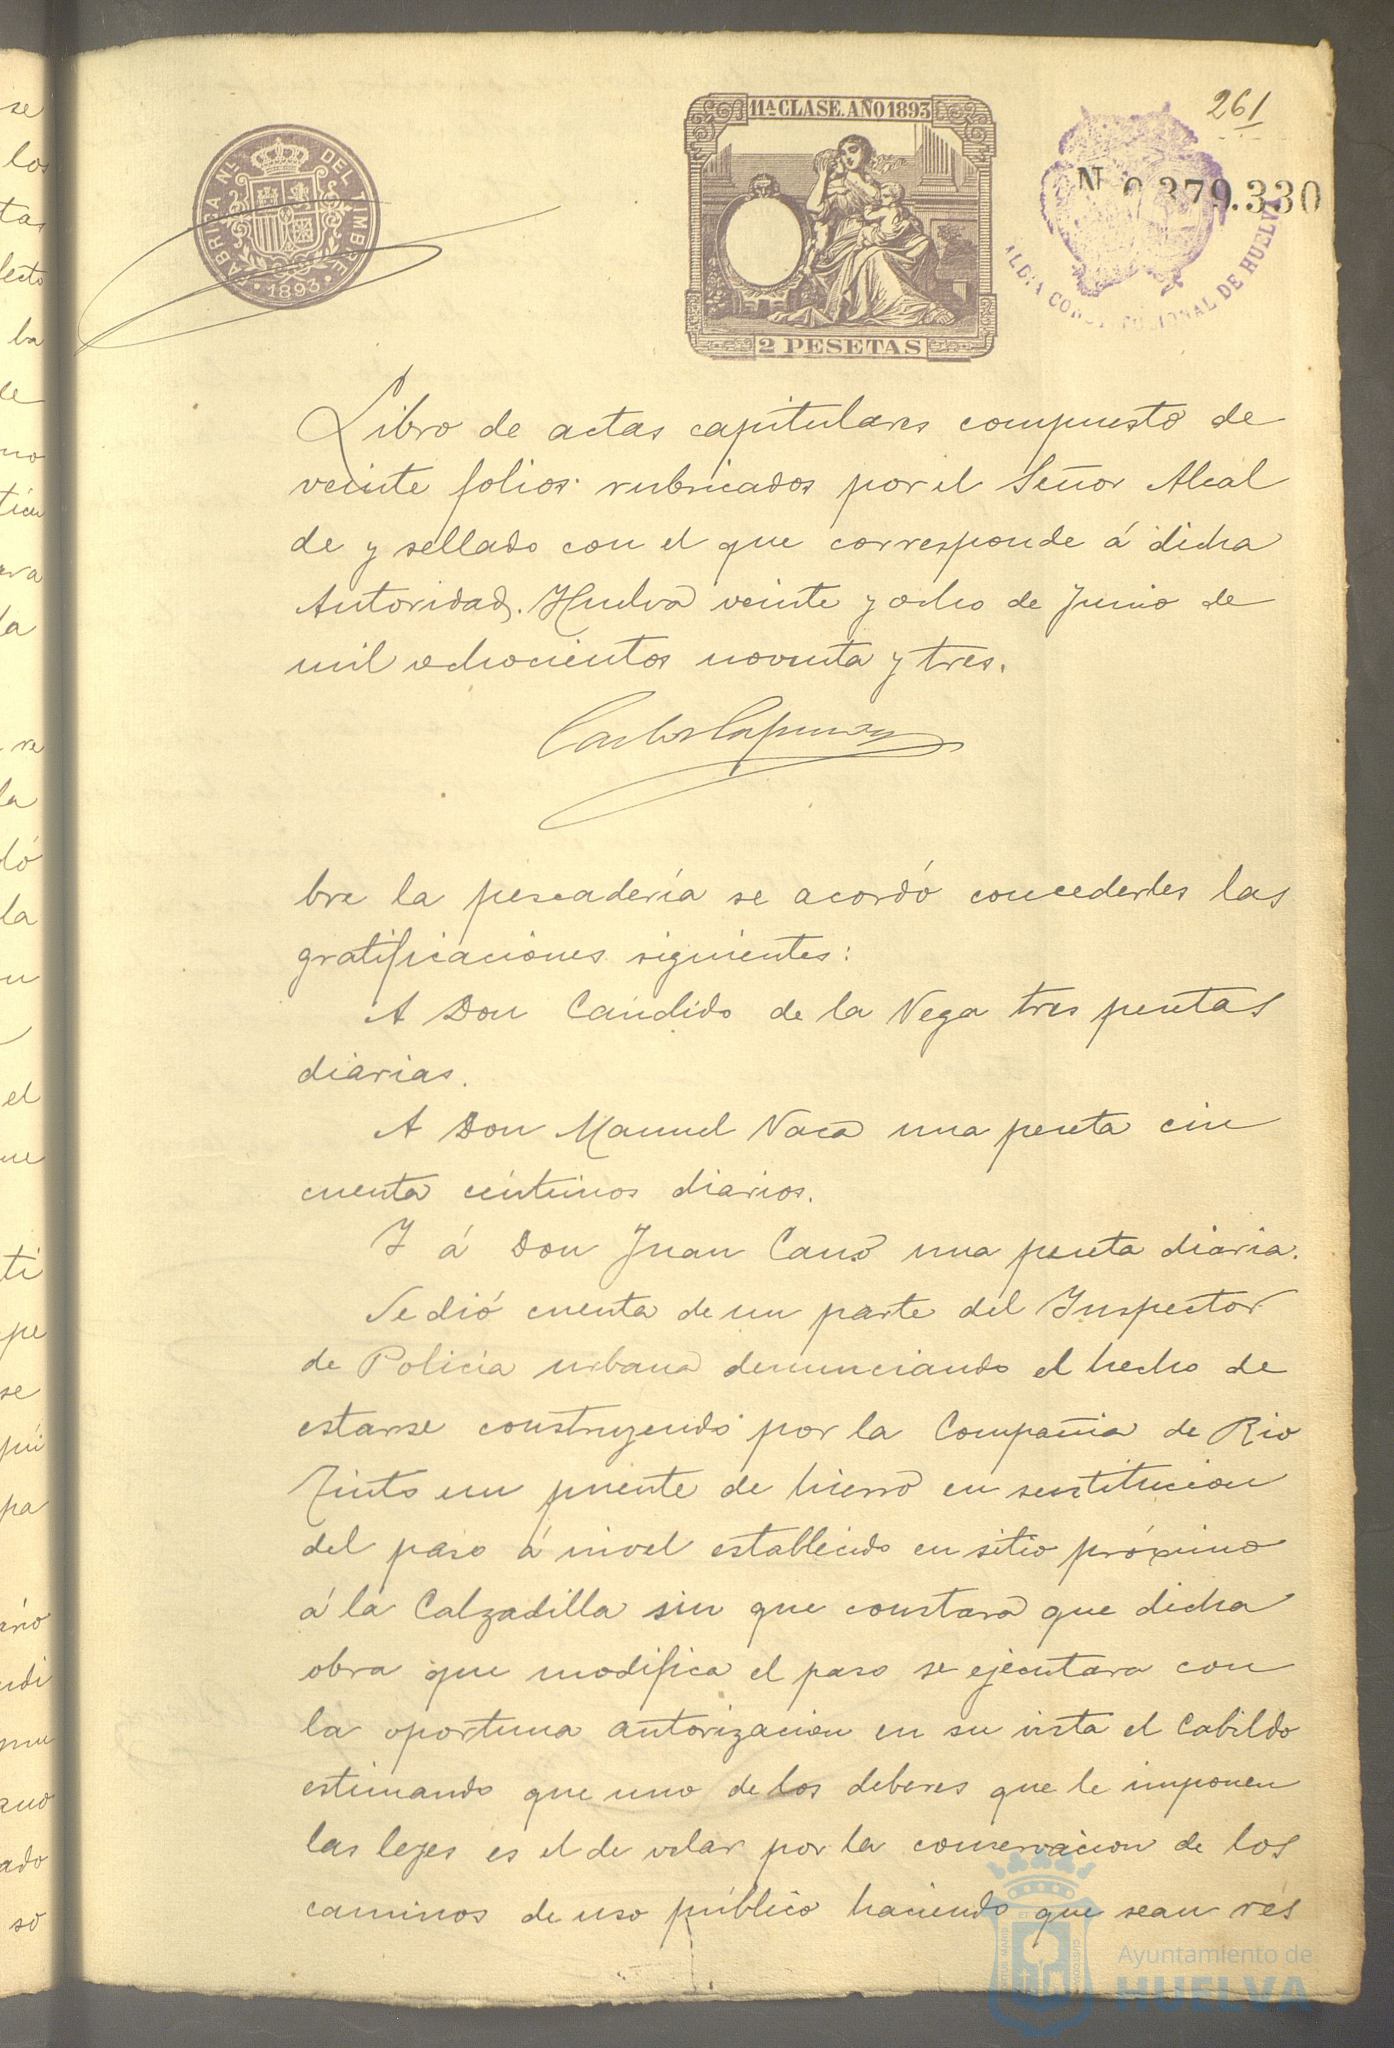 261
11ª CLASE. AÑO 1893
FABRICA Nˡ. DEL TIMBRE
1893
Nº 0.379.330
ALCALDIA CONSTITUCIONAL DE HUELVA
2 PESETAS
Libro de actas capitulares compuesto de
veinte folios rubricados por el Señor Alcal
de y sellado con el que corresponde á dicha
Autoridad. Huelva veinte y ocho de Junio de
mil ochocientos noventa y tres.
bre la pescadería se acordó concederles las
gratificaciones siguientes:
A Don Cándido de la Vega tres pesetas
diarias.
A Don Manuel Vaca una peseta cin
cuenta céntimos diarios.
Y á Don Juan Cano una peseta diaria.
Se dió cuenta de un parte del Inspector
de Policía urbana denunciando el hecho de
estarse construyendo por la Compañia de Rio
Tinto un puente de hierro en sustitucion
del paso á nivel establecido en sitio próximo
á la Calzadilla sin que constara que dicha
obra que modifica el paso se ejecutara con
la oportuna autorizacion en su vista el Cabildo
estimando que uno de los deberes que le imponen
las leyes es el de velar por la conservacion de los
caminos de uso público haciendo que sean res
Ayuntamiento de
HUELVA